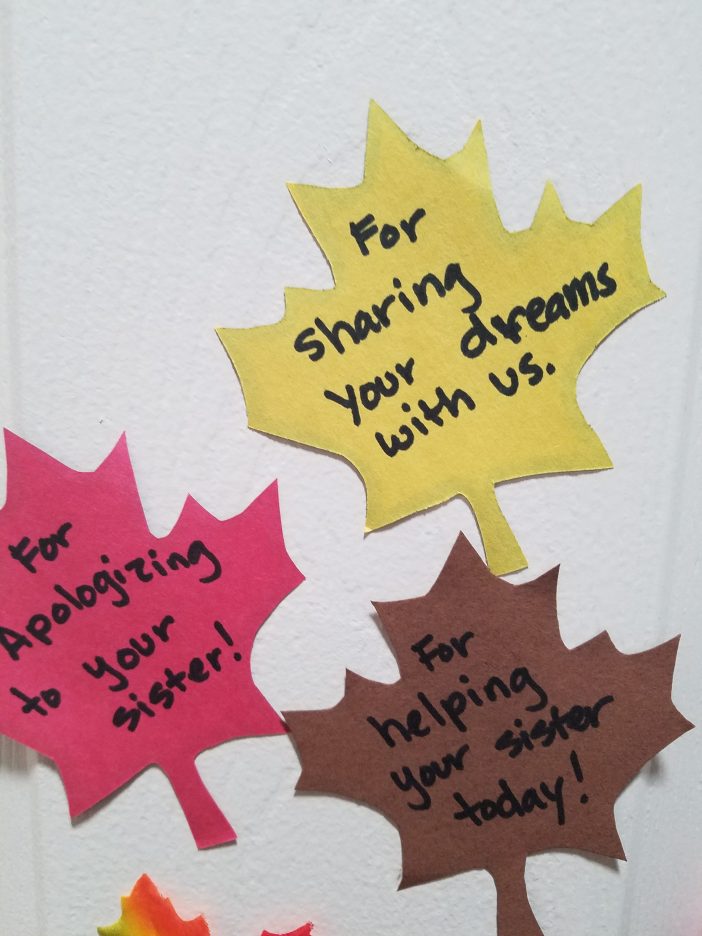 For
sharing
your dreams
with us.
For
Apologizing
to your
sister!
For
helping
your sister
today!